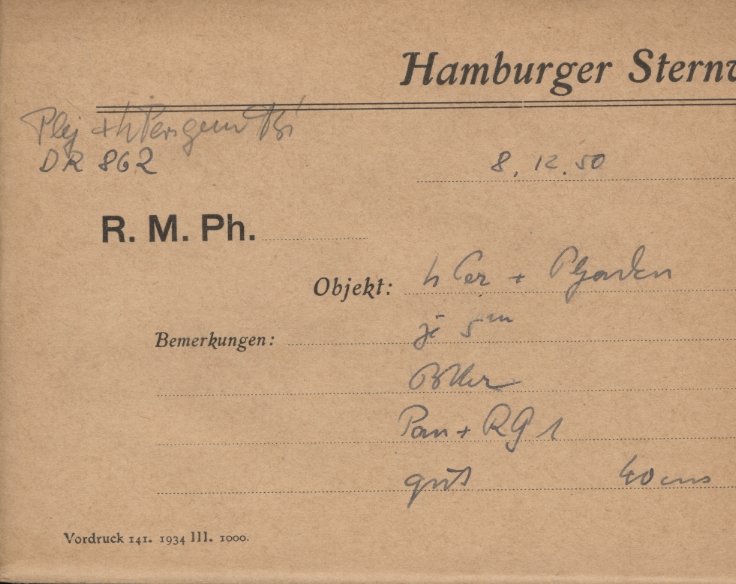 Hamburger Stern
Plej + h Per
DR 862
8. 12. 50
R. M. Ph.
Objekt: h Per + Plejaden
Bemerkungen: je 5m
Pan + RG 1
gut 40 cm
Vordruck 141. 1934 III. 1000.